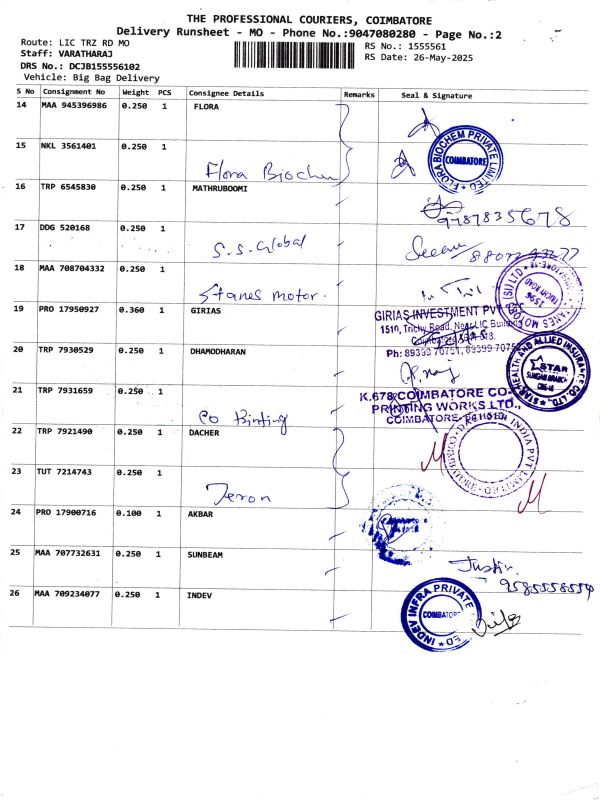 THE PROFESSIONAL COURIERS, COIMBATORE
Delivery Runsheet - MO - Phone No.:9047080280 - Page No.:2
Route: LIC TRZ RD MO
Staff: VARATHARAJ
DRS No.: DCJB155556102
Vehicle: Big Bag Delivery
RS No.: 1555561
RS Date: 26-May-2025
S No Consignment No Weight PCS Consignee Details Remarks Seal & Signature
14 MAA 945396986 0.250 1 FLORA
FLORA BIOCHEM PRIVATE LIMITED
COIMBATORE
15 NKL 3561401 0.250 1
Flora Biochem
16 TRP 6545830 0.250 1 MATHRUBOOMI
9787835678
17 DDG 520168 0.250 1
S.S. Global
18 MAA 708704332 0.250 1
Stanes motor.
STANES MOTORS (SI) LTD
1596
TRICHY ROAD
19 PRO 17950927 0.360 1 GIRIAS
GIRIAS INVESTMENT PVT
1510, Trichy Road, Near LIC Building
Coimbatore
Ph: 89399 70751, 89399
20 TRP 7930529 0.250 1 DHAMODHARAN
STAR HEALTH AND ALLIED INSURANCE CO. LTD.
STAR
BRANCH
21 TRP 7931659 0.250 1
CO Printing
K.678 COIMBATORE CO-
PRINTING WORKS LTD.,
COIMBATORE
22 TRP 7921490 0.250 1 DACHER
INDIA PVT. LIMITED
23 TUT 7214743 0.250 1
Teron
24 PRO 17900716 0.100 1 AKBAR
25 MAA 707732631 0.250 1 SUNBEAM
Justin
9585558554
26 MAA 709234077 0.250 1 INDEV
INDEV INFRA PRIVATE
COIMBATORE